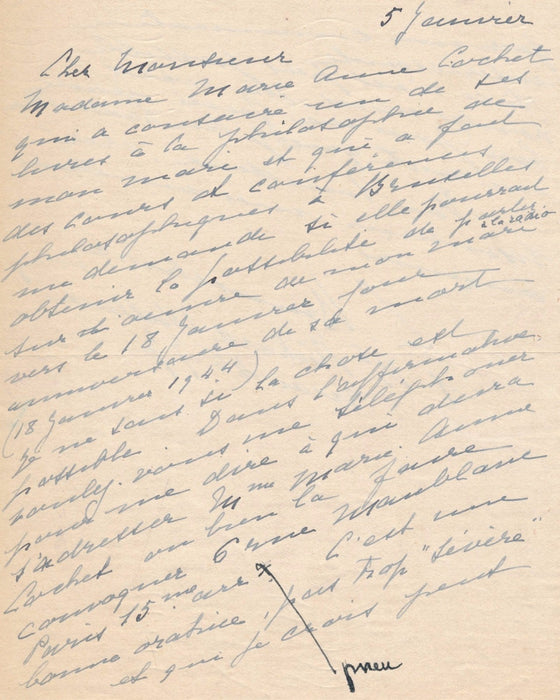 5 Janvier
Cher Monsieur
Madame Marie Anne Cochet
qui a consacré un de ses
livres à la philosophie de
mon mari et qui a fait
des cours et conférences
philosophiques à Bruxelles
me demande si elle pourrait
obtenir la possibilité de parler
à la radio
sur l'œuvre de mon mari
vers le 18 Janvier jour
anniversaire de sa mort
(18 Janvier 1944)
Je ne sais si la chose est
possible. Dans l'affirmative
voulez-vous me téléphoner
pour me dire à qui devra
s'adresser Mme Marie Anne
Cochet ou bien la faire
convoquer 6 rue Maublanc
Paris 15me arr x C'est une
bonne oratrice, pas trop "sévère"
et qui je crois peut
pneu